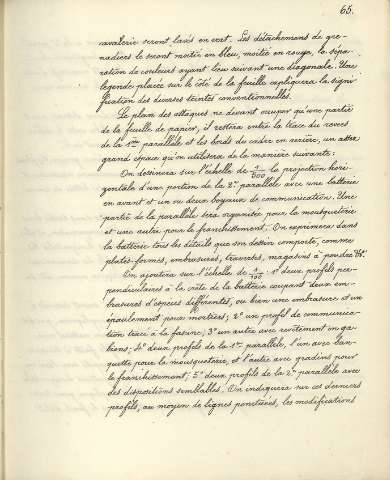 65.
cavalerie seront lavés en vert. Les détachements de gre-
nadiers le seront moitié en bleu, moitié en rouge, la sépa-
ration de couleurs ayant lieu suivant une diagonale. Une
légende placée sur le côté de la feuille expliquera la signi-
fication des diverses teintes conventionnelles.
Le plan des attaques ne devant occuper qu'une partie
de la feuille de papier, il restera entre la trace du revers
de la 1ère parallèle et les bords du cadre en arrière, un assez
grand espace qu'on utilisera de la manière suivante:
On dessinera sur l'échelle de 1/500 la projection hori-
zontale d'une portion de la 2e parallèle avec une batterie
en avant et un ou deux boyaux de communication. Une
partie de la parallèle sera organisée pour la mousqueterie
et une autre pour le franchissement. On exprimera dans
la batterie tous les détails que son dessin comporte, comme
plates-formes, embrasures, traverses, magasins à poudre &c.
On ajoutera sur l'échelle de 1/100: 1° deux profils per-
pendiculaires à la crête de la batterie coupant deux em-
brasures d'espèces différentes, ou bien une embrasure et un
épaulement pour mortiers; 2° un profil de communica-
tion tracé à la fascine; 3° un autre avec revêtement en ga-
bions; 4° deux profils de la 1ère parallèle, l'un avec ban-
quette pour la mousqueterie et l'autre avec gradins pour
le franchissement; 5° deux profils de la 2e parallèle avec
des dispositions semblables. On indiquera sur ces derniers
profils, au moyen de lignes ponctuées, les modifications